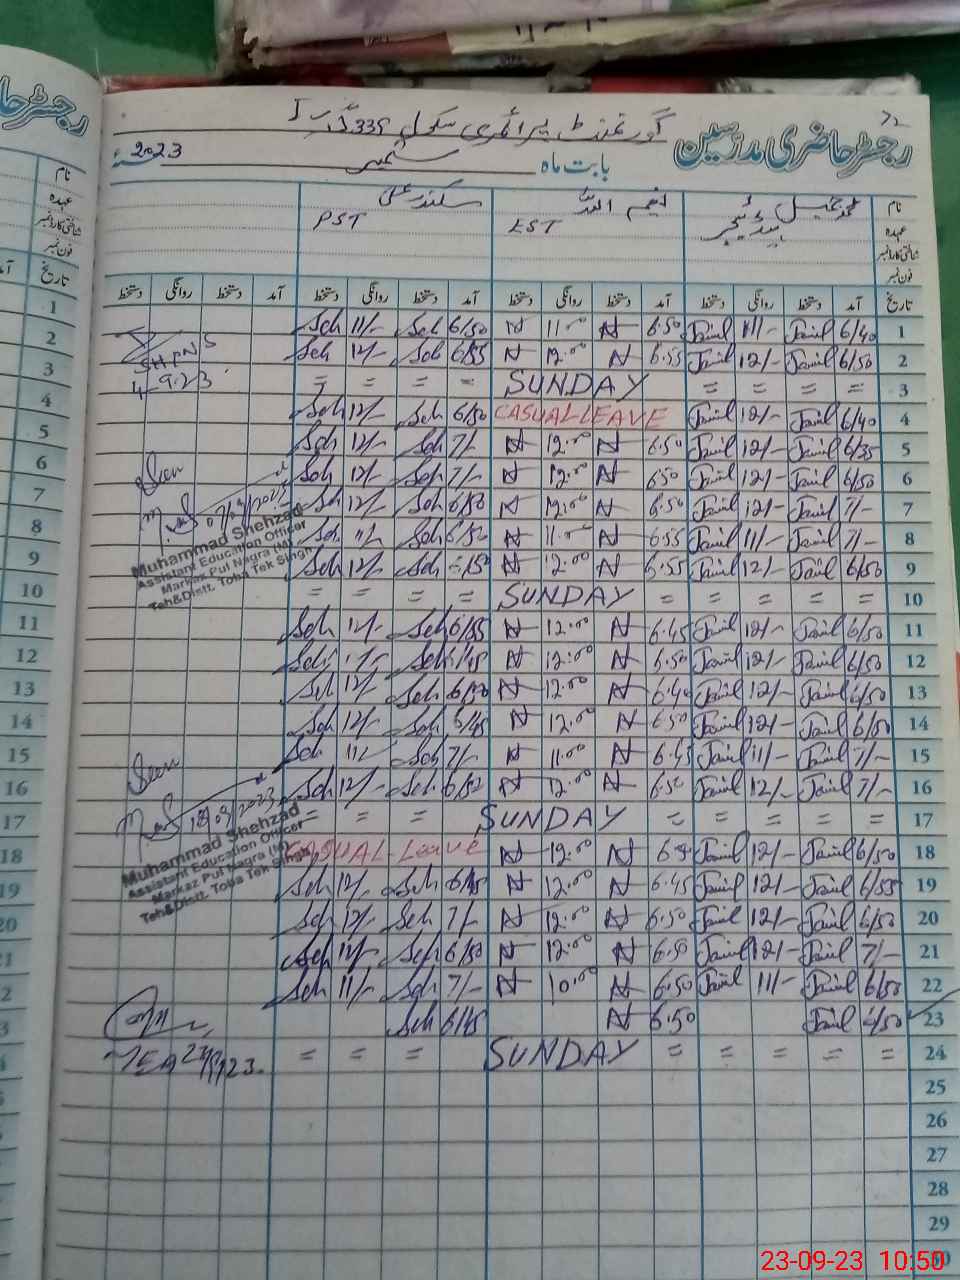 رجسٹر حاضری مدرسین
گورنمنٹ پرائمری سکول
بابت ماہ ستمبر 2023
نام سکندر علی
عہدہ ہیڈ ٹیچر EST PST
شناختی کارڈ نمبر
فون نمبر
تاریخ آمد دستخط روانگی دستخط آمد دستخط روانگی دستخط آمد دستخط روانگی دستخط آمد دستخط روانگی دستخط
1 6/40 Jamil 11/- Jamil 6.50 N 11.00 N 6/50 Sch 11/- Sch
2 6/50 Jamil 12/- Jamil 6.55 N 12.00 N 6/55 Sch 12/- Sch
3 = = = = SUNDAY = = = =
4 6/40 Jamil 12/- Jamil CASUAL LEAVE 6/50 Sch 12/- Sch
4-9-23
5 6/35 Jamil 12/- Jamil 6.50 N 12.00 N 7/- Sch 12/- Sch
6 6/50 Jamil 12/- Jamil 650 N 12.00 N 7/- Sch 12/- Sch
Seen
7 7/- Jamil 12/- Jamil 6.50 N 12.00 N 6/50 Sch 12/- Sch
8 7/- Jamil 11/- Jamil 6.55 N 11.00 N 6/50 Sch 11/- Sch
9 6/50 Jamil 12/- Jamil 6.55 N 12.00 N Sch 12/- Sch
Muhammad Shehzad
Assistant Education Officer
Markaz Pul Nagra (M)
Teh&Distt. Toba Tek Singh
10 = = = = SUNDAY = = = =
11 6/50 Jamil 12/- Jamil 6.45 N 12.00 N 6/55 Sch 12/- Sch
12 6/50 Jamil 12/- Jamil 6.50 N 12:00 N 6/45 Sch Sch
13 6/50 Jamil 12/- Jamil 6.40 N 12.00 N 6/50 Sch 12/- Sch
14 6/50 Jamil 12/- Jamil 6.50 N 12.00 N 6/45 Sch 12/- Sch
15 7/- Jamil 11/- Jamil 6.45 N 11.00 N 7/- Sch 11/- Sch
Seen
16 7/- Jamil 12/- Jamil 6.50 N 12.00 N Sch 12/- Sch
17 = = = = SUNDAY = = = =
Muhammad Shehzad
Assistant Education Officer
Markaz Pul Nagra (M)
Teh&Distt. Toba Tek Singh
18 6/50 Jamil 12/- Jamil N 12.00 N CASUAL-Leave
19 6/55 Jamil 12/- Jamil 6.45 N 12.00 N 6/45 Sch 12/- Sch
20 6/50 Jamil 12/- Jamil 6.50 N 12.00 N 7/- Sch 12/- Sch
21 7/- Jamil 12/- Jamil 6.50 N 12.00 N 6/50 Sch 12/- Sch
22 6/50 Jamil 11/- Jamil 6.50 N 10.00 N 7/- Sch 11/- Sch
23 6/50 Jamil 6.50 N 6/45 Sch
24 = = = = SUNDAY = = =
25
26
27
28
29
30
23-09-23 10:50